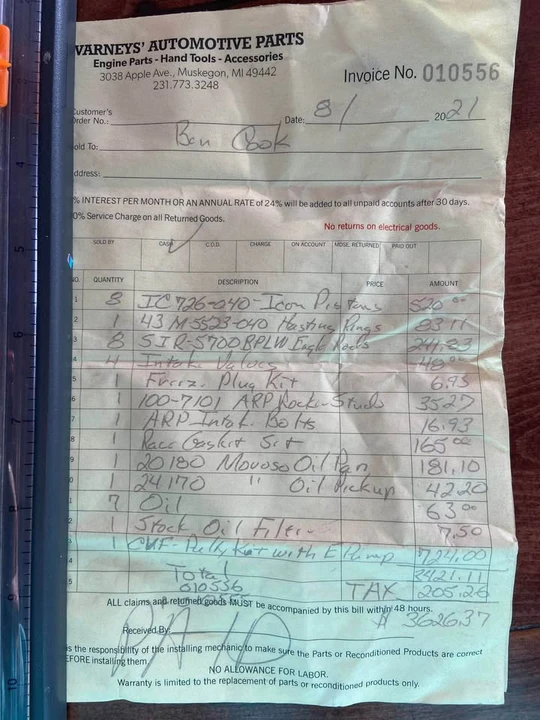 VARNEYS' AUTOMOTIVE PARTS
Engine Parts - Hand Tools - Accessories
3038 Apple Ave., Muskegon, MI 49442
231.773.3248
Invoice No. 010556
Customer's
Order No.: Date: 8/ 2021
old To: Ben Cook
ddress:
% INTEREST PER MONTH OR AN ANNUAL RATE of 24% will be added to all unpaid accounts after 30 days.
0% Service Charge on all Returned Goods.
No returns on electrical goods.
SOLD BY CASH C.O.D. CHARGE ON ACCOUNT MDSE. RETURNED PAID OUT
NO. QUANTITY DESCRIPTION PRICE AMOUNT
1 8 IC 726-040-Icon Pistons 520 00
2 1 43 M-5523-040 Hasting Rings 83 11
3 8 SIR-5700BPLW Eagle Rods 241.83
4 4 Intake Valves 48 00
5 1 Freez. Plug Kit 6.95
6 1 100-7101 ARP Rocker Studs 35 27
7 1 ARP Intak. Bolts 16.93
8 1 Race Gaskit Set 165 00
9 1 20180 Moroso Oil Pan 181.10
0 1 24170 " Oil Pickup 42.20
1 7 Oil 63 00
2 1 Stock Oil Filter 7.50
3 1 Pully Kit with E Pump 724.00
4 Total 3421.11
5 010556 TAX 205.26
ALL claims and returned goods MUST be accompanied by this bill within 48 hours.
$ 3626.37
Received By:
PAID
is the responsibility of the installing mechanic to make sure the Parts or Reconditioned Products are correct
EFORE installing them.
NO ALLOWANCE FOR LABOR.
Warranty is limited to the replacement of parts or reconditioned products only.